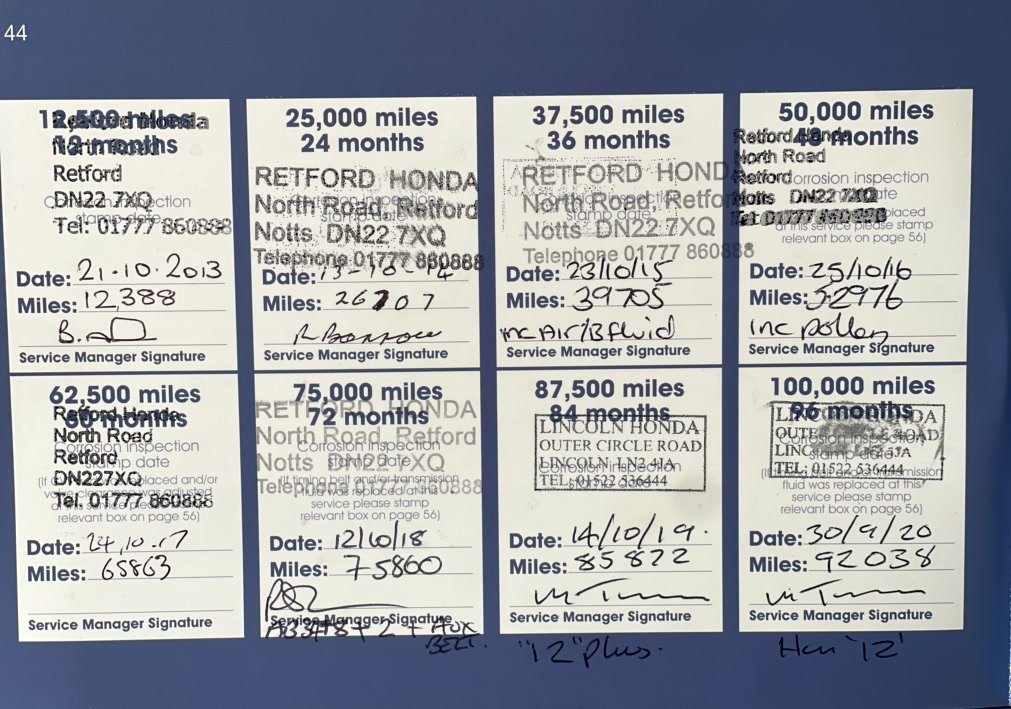 44
12,500 miles
12 months
North Road
Retford
DN22 7XQ
Tel: 01777 860888
Date: 21.10.2013
Miles: 12,388
Service Manager Signature
25,000 miles
24 months
RETFORD HONDA
North Road, Retford
Notts DN22 7XQ
Telephone 01777 860888
stamp date
Date: 13-10-14
Miles: 26707
Service Manager Signature
37,500 miles
36 months
RETFORD HONDA
North Road, Retford
stamp date
Notts DN22 7XQ
Telephone 01777 860888
Date: 23/10/15
Miles: 39705
Inc Air/B fluid
Service Manager Signature
50,000 miles
48 months
Retford Honda
North Road
Retford
Corrosion inspection
Notts DN22 7XQ
Tel: 01777 860888
at this service please stamp
relevant box on page 56)
Date: 25/10/16
Miles: 52976
inc pollen
Service Manager Signature
62,500 miles
60 months
Retford Honda
North Road
Corrosion inspection
Retford
stamp date
DN227XQ
Tel. 01777 860888
relevant box on page 56)
Date: 24.10.17
Miles: 65863
Service Manager Signature
75,000 miles
72 months
RETFORD HONDA
North Road, Retford
Corrosion inspection
stamp date
Notts DN22 7XQ
Telephone 01777 860888
(If timing belt and/or transmission
fluid was replaced at this
service please stamp
relevant box on page 56)
Date: 12/10/18
Miles: 75860
Service Manager Signature
+ 2 + AUX
BELT.
87,500 miles
84 months
LINCOLN HONDA
OUTER CIRCLE ROAD
LINCOLN LN2 4JA
Corrosion inspection
TEL: 01522 536444
stamp date
Date: 14/10/19.
Miles: 85822
Service Manager Signature
"12" plus.
100,000 miles
96 months
Corrosion inspection
stamp date
TEL: 01522 536444
(If timing belt and/or transmission
fluid was replaced at this
service please stamp
relevant box on page 56)
Date: 30/9/20
Miles: 92038
Service Manager Signature
'12'